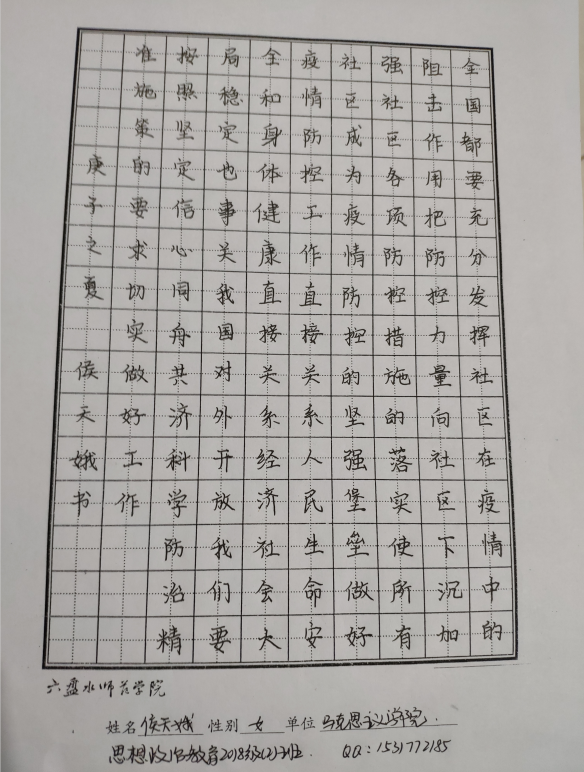 全国都要充分发挥社区在疫情中的
阻击作用把防控力量向社区下沉加
强社区各项防控措施的落实使所有
社区成为疫情防控的坚强堡垒做好
疫情防控工作直接关系人民生命安
全和身体健康直接关系经济社会大
局稳定也事关我国对外开放我们要
按照坚定信心同舟共济科学防治精
准施策的要求切实做好工作
庚子之夏 侯天娥书
六盘水师范学院
姓名 侯天娥 性别 女 单位 马克思主义学院.
思想政治教育2018级(2)班. QQ: 1531772185